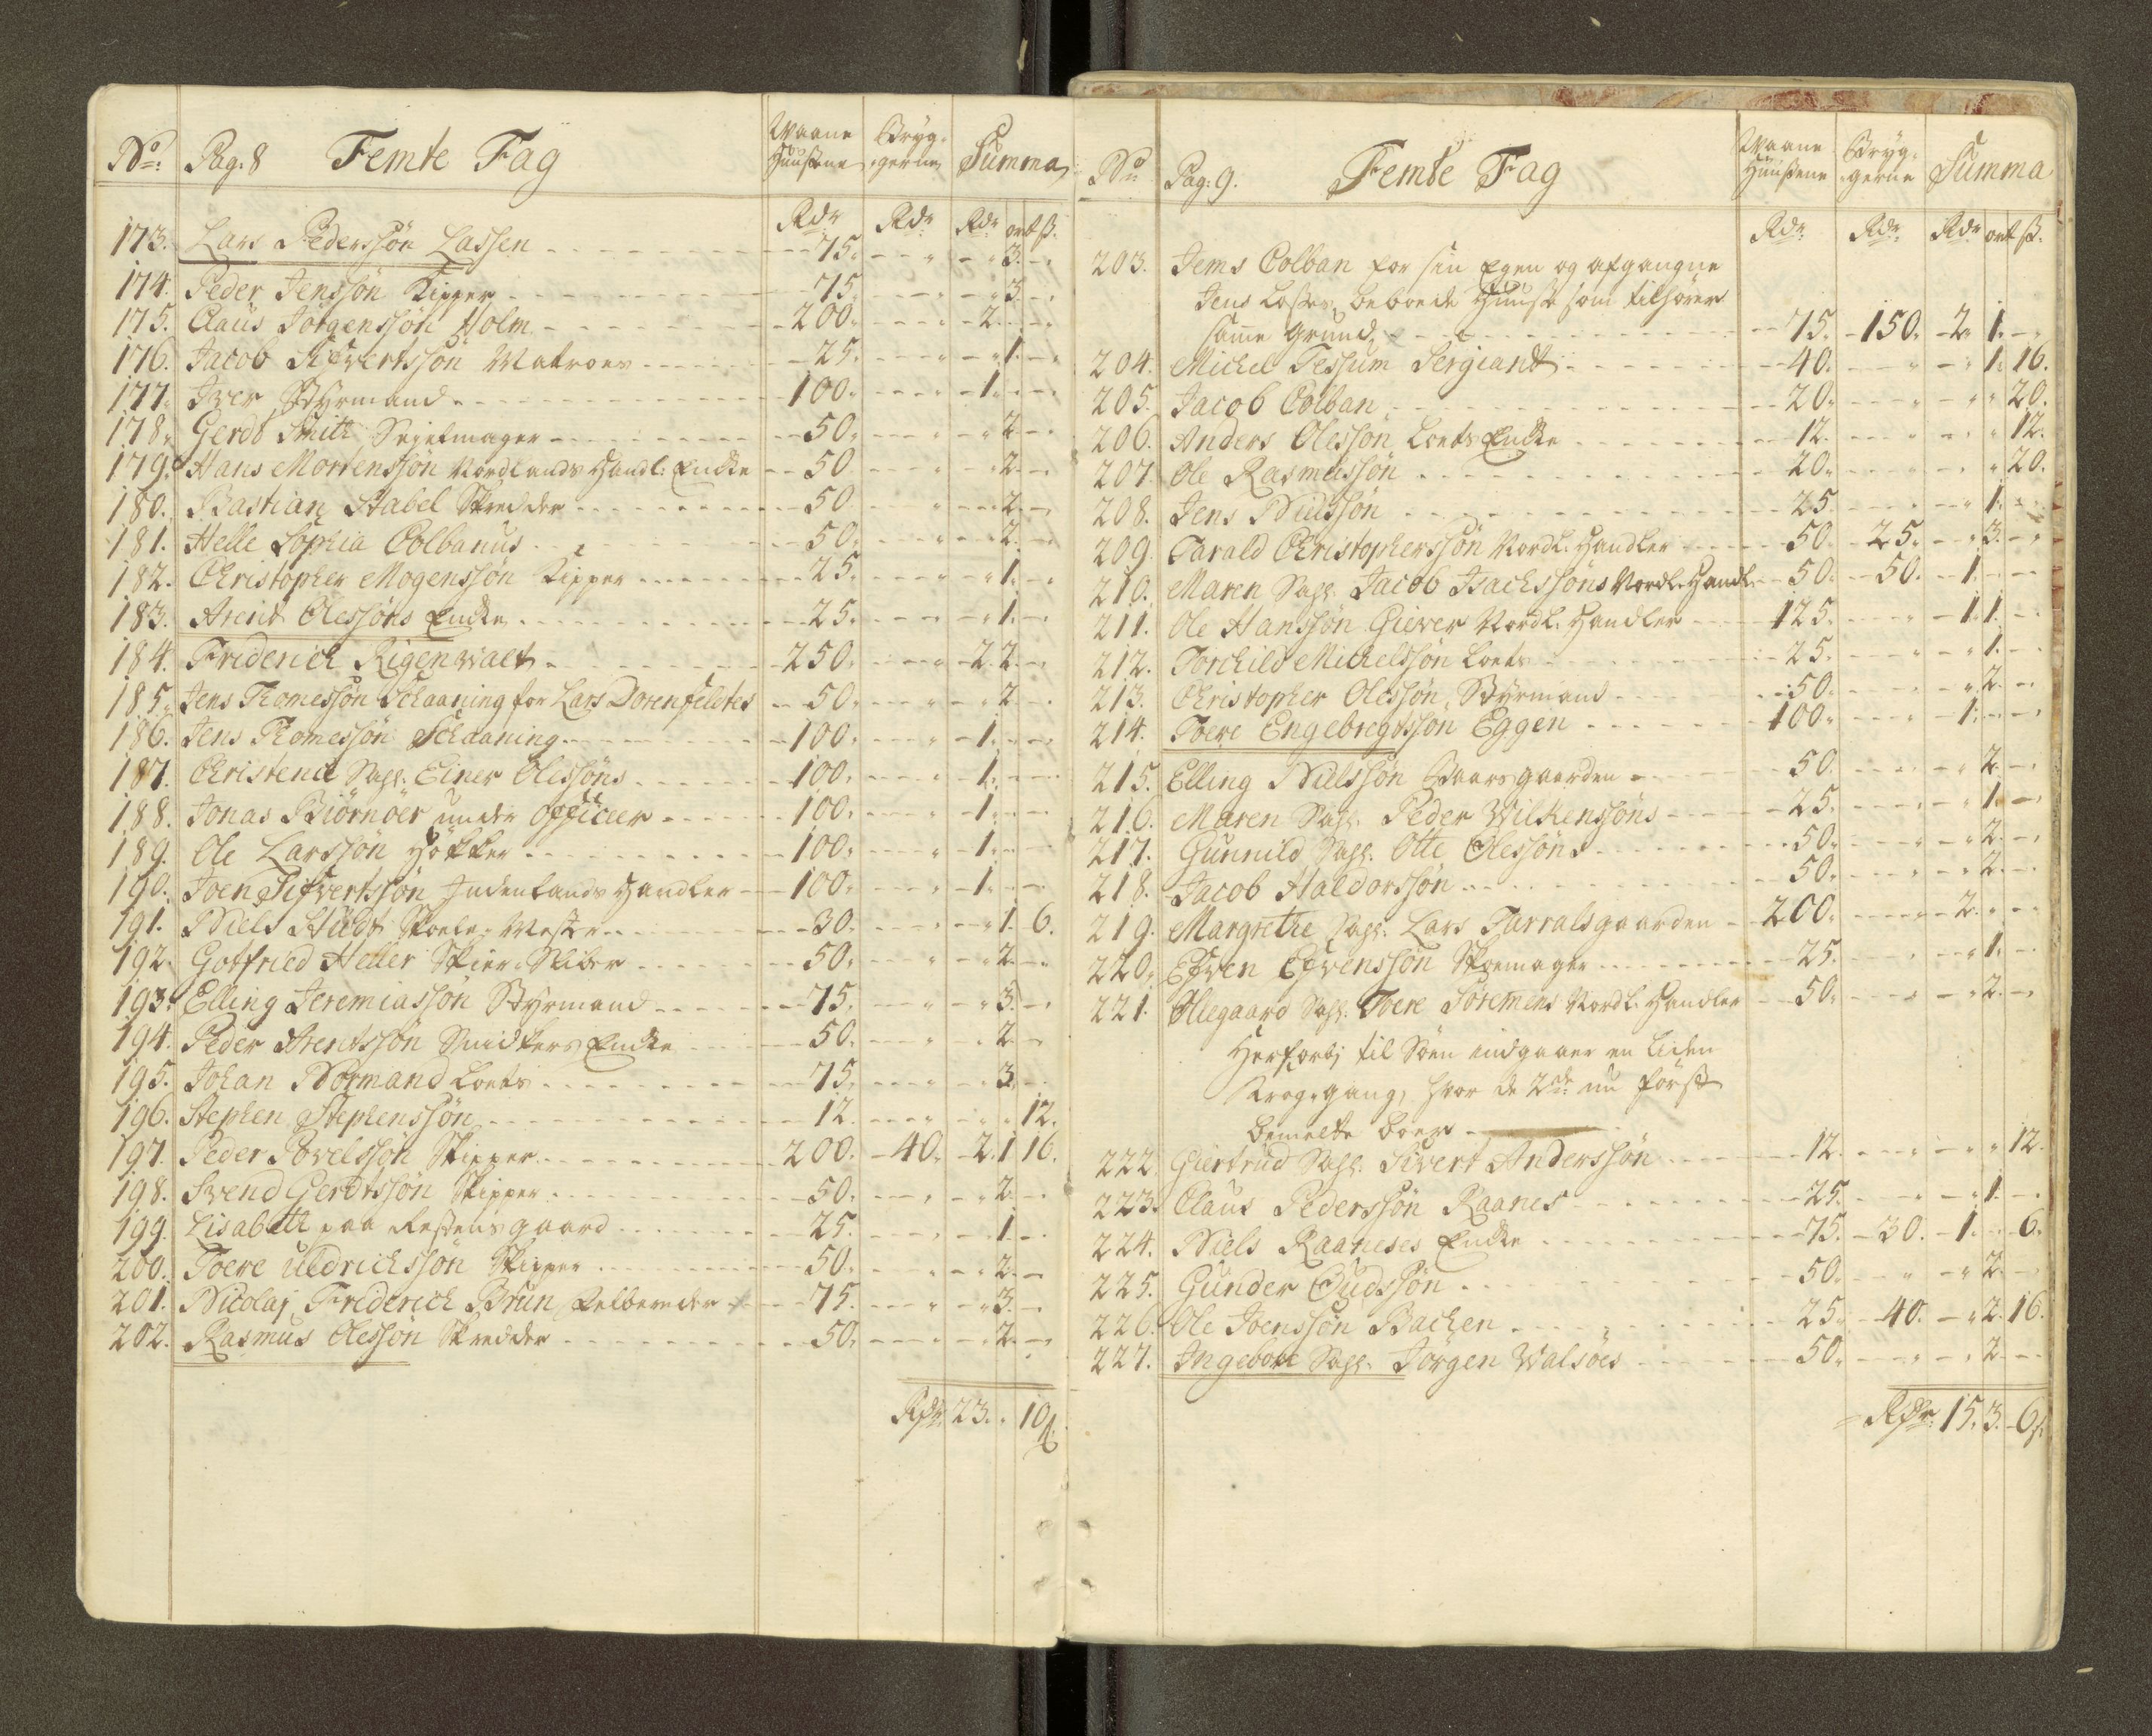 No: Pag: 8 Femte Fag Waane Huußene Bryg-gerne Summa
Rdr Rdr Rdr ort ß.
173. Lars Pederssön Lassen 75. 3.
174. Peder Jenssön Kipper 75. 3.
175. Claus Jörgenssön Holm 200. 2.
176. Jacob Sifvertssön Matroes 25. 1.
177. Iver Styrmand 100. 1.
178. Gerdt Smith Sejelmager 50. 2.
179. Hans Mortenssön Nordlands Handl: Encke 50. 2.
180. Bastian Stabel Skredder 50. 2.
181. Helle Sophia Colbanus 50. 2.
182. Christopher Mogenssön Kipper 25. 1.
183. Arent Olessöns Encke 25. 1.
184. Friderich Rigenwalt 250. 2. 2.
185. Jens Thomessön Schaaning for Lars Dorenfeldtes 50. 2.
186. Jens Thomessön Schaaning 100. 1.
187. Christence Sahl. Einer Olessöns 100. 1.
188. Jonas Biörnöer under Officeer 100. 1.
189. Ole Larssön Höcker 100. 1.
190. Joen Sifvertssön Indenlands Handler 100. 1.
191. Niels Studt Skoele-Mester 30. 1. 6.
192. Gotfried Heller Skier-Sliber 50. 2.
193. Elling Jeremiassön Styrmand 75. 3.
194. Peder Arentssön Snidkers Encke 50. 2.
195. Johan Normand Loets 75. 3.
196. Stephen Stephenssön 12. 12.
197. Peder Povelssön Skipper 200. 40. 2. 1 16.
198. Svend Gerdtssön Skipper 50. 2.
199. Lisabeth paa Restensgaard 25. 1.
200. Toere Uldrichssön Skipper 50. 2.
201. Nicolaj Friderich Brun Felbereder 75. 3.
202. Rasmus Olessön Skredder 50. 2.
Rdr 23. 10ß.
No Pag: 9. Femte Fag Waane Huußene Bryg-gerne Summa
Rdr Rdr Rdr ort ß.
203. Jems Colban for sin Egen og afgangne
Jens Losses beboede Huuse som tilhörer
samme Grund 75. 150. 2. 1.
204. Michel Tessum Sergiant 40. 1. 16.
205. Jacob Colban 20. 20.
206. Anders Olessön Loets Encke 12. 12.
207. Ole Rasmussön 20. 20.
208. Jens Nielssön 25. 1.
209. Tarald Christopherssön Nordl. Handler 50. 25. 3.
210. Maren Sahl. Jacob Isachssöns Nordl. Handl. 50. 50. 1.
211. Ole Hanssön Giever Nordl. Handler 125. 1. 1.
212. Torchild Michelssön Loets 25. 1.
213. Christopher Olessön Styrmand 50. 2.
214. Toere Engebregtssön Eggen 100. 1.
215. Elling Nielssön Vaarsgaarden 50. 2.
216. Maren Sahl. Peder Wilkenssöns 25. 1.
217. Gunnild Sahl. Otte Olessöns 50. 2.
218. Jacob Haldorssön 50. 2.
219. Margrethe Sahl. Lars Tarralsgaarden 200. 2.
220. Efven Efvenssön Skoemager 25. 1.
221. Olegaard Sahl. Toere Söremens Nordl. Handler 50. 2.
Herforbj til Söen indgaaer en Liden
Krog-gang, hvor de 2de nu först
bemelte boer
222. Giertrud Sahl. Sivert Anderssön 12. 12.
223. Claus Pederssön Raanes 25. 1.
224. Niels Raaneses Encke 75. 30. 1. 6.
225. Gunder Gudssön 50. 2.
226. Ole Joenssön Bachen 25. 40. 2. 16.
227. Ingebore Sahl. Jörgen Walsöes 50. 2.
Rdr 15. 3. 6ß.